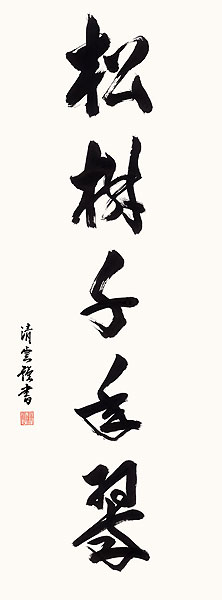 松樹千年翠
清雲謹書